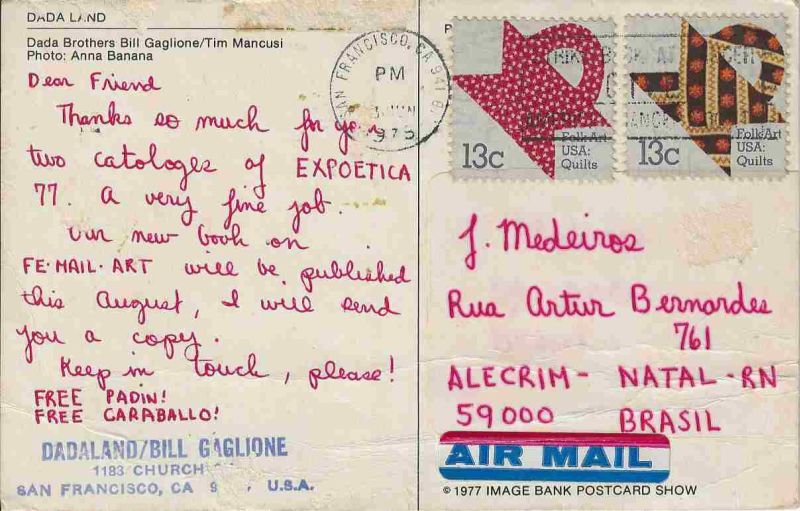 DADA LAND
Dada Brothers Bill Gaglione/Tim Mancusi
Photo: Anna Banana
Dear Friend
Thanks so much for your
two catologes of EXPOETICA
77. A very fine job.
Our new book on
FE·MAIL·ART will be published
this August, I will send
you a copy.
Keep in touch, please!
FREE PADIN!
FREE CARABALLO!
DADALAND/BILL GAGLIONE
1183 CHURCH
SAN FRANCISCO, CA 9 U.S.A.
SAN FRANCISCO, CA 941
PM
13c
Folk Art
USA:
Quilts
13c
Folk Art
USA:
Quilts
J. Medeiros
Rua Artur Bernardes
761
ALECRIM - NATAL - RN
59000 BRASIL
AIR MAIL
© 1977 IMAGE BANK POSTCARD SHOW